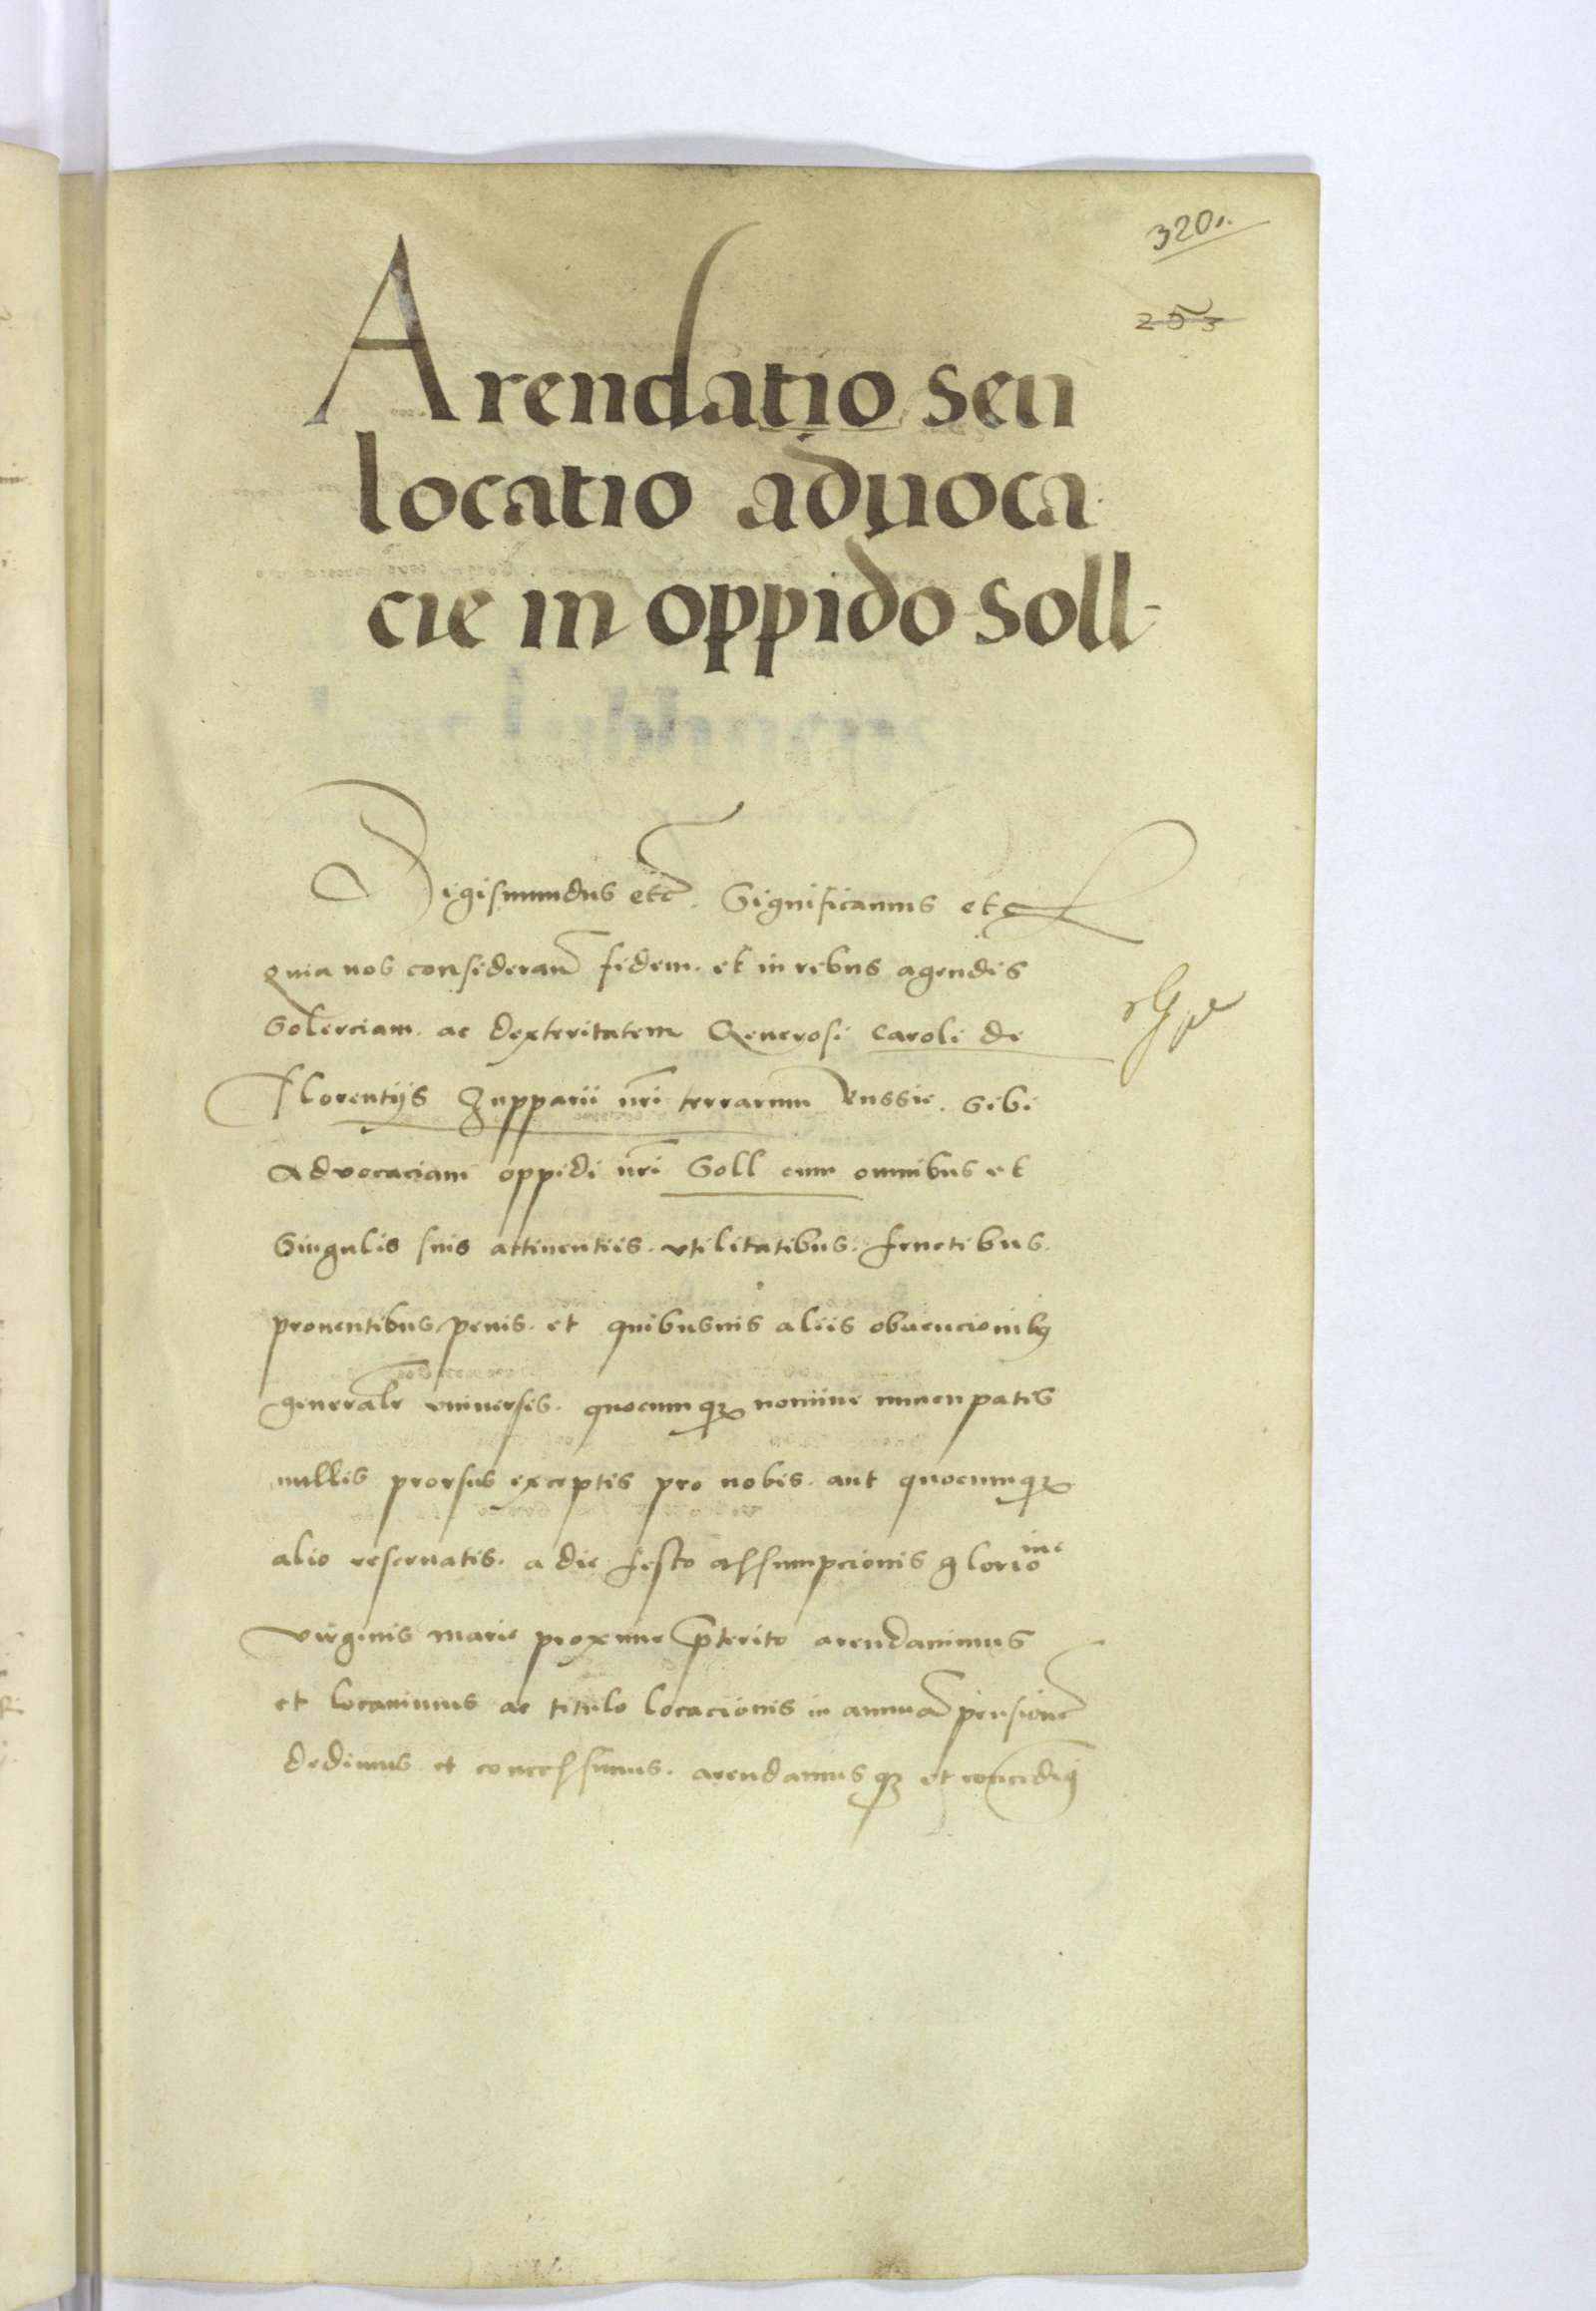 320.
253
Arendatio seu
locatio aduoca
cie in oppido soll-
Sigismundus etc. Significamus etc
Quia nos considerañ fidem. et in rebus agendis
Solerciam. ac dexteritatem Generosi Caroli de
Florentijs Zupparii nri terrarum Russie. Sibi
Advocaciam oppidi nri Soll cum omnibus et
Singulis suis attinentiis. vtilitatibus. fructibus.
prouentibus, penis. et quibusuis aliis obuencionibȝ
generalr vniuersis. quocumqȝ nomine nuncupatis
nullis prorsus exceptis pro nobis. aut quocumqȝ
alio reseruatis. a die festo assumpcionis glorioᵐᵉ
virginis marie proxime p̄terito arendauimus
et locauimus ac titulo locacionis in annuā pensionē
dedimus et concessimus. arendamusqȝ et concedimꝰ